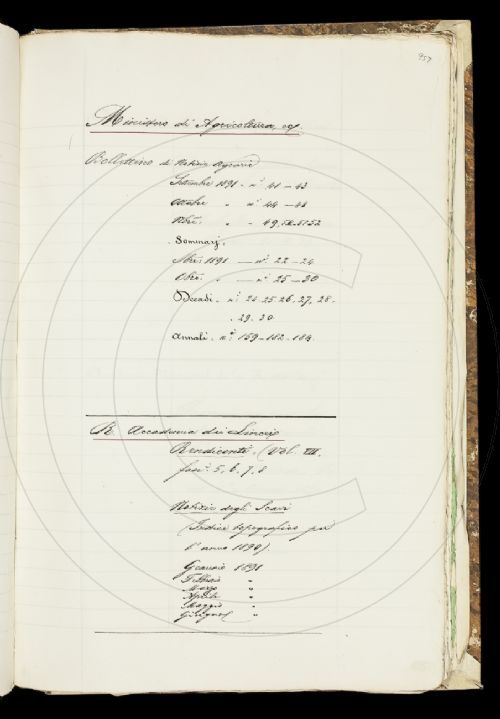 957
Ministero di Agricoltura, ecc.
Bollettino di Notizie Agrarie
Settembre 1891 - n.i 41 - 43
Ottobre " n.i 44 - 48
Nbre: " - 49, 50, 51 52
Sommarj:
Sbre: 1891 - n.i 22 - 24
Obre: " - n.i 25 - 30
Decadi. n.i 24 25 26. 27, 28.
. 29. 30
Annali. n.i 159 - 182. 184.
R. Accademia dei Lincei
Rendiconti. (Vol. VII.
fasc. 5, 6, 7, 8
Notizie degli Scavi
(Indice topografico per
l'anno 1890)
Gennaio 1891
Febbraio "
Marzo "
Aprile "
Maggio "
Giugno "